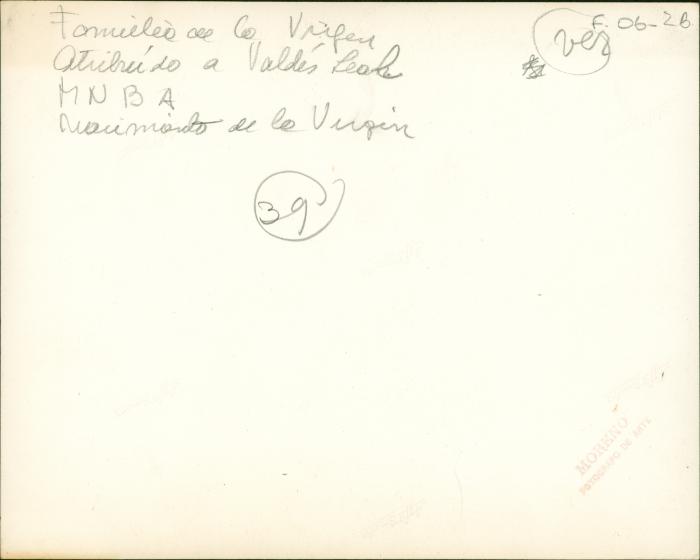 Familia de la Virgen
Atribuído a Valdés Leal
M N B A
Nacimiento de la Virgen
ver
F. 06-2B
39
MORENO
FOTOGRAFO DE ARTE